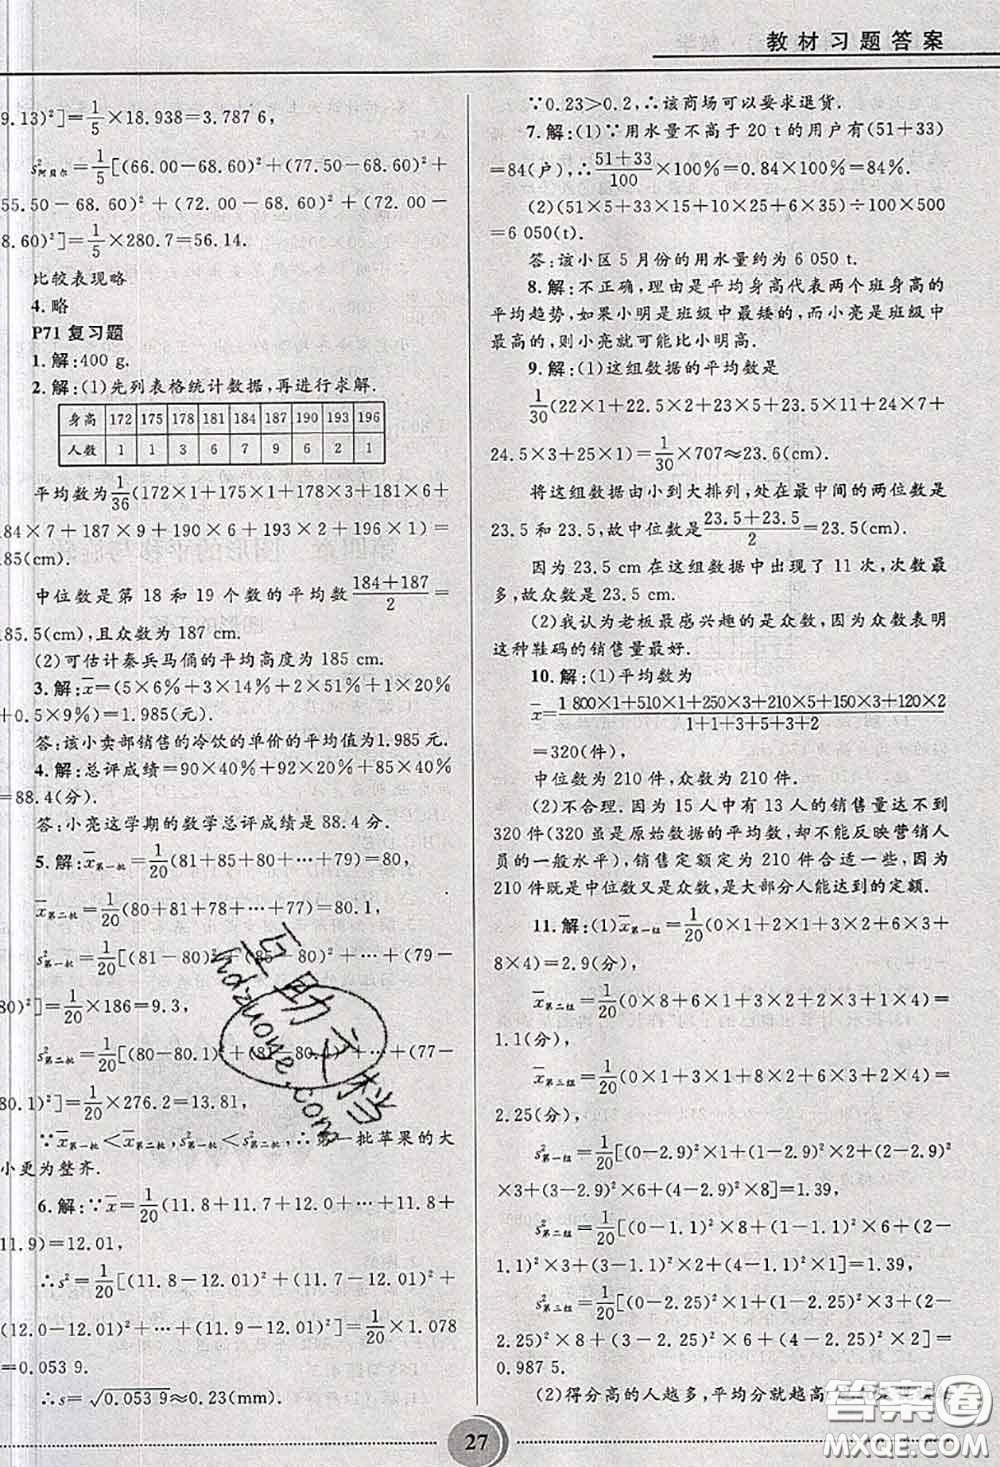 教材习题答案
9.13)²]=1/5×18.938=3.787 6,
s²阿贝尔=1/5[(66.00-68.60)²+(77.50-68.60)²+
55.50-68.60)²+(72.00-68.60)²+(72.00-
8.60)²]=1/5×280.7=56.14.
比较表现略
4.略
P71 复习题
1.解:400 g.
2.解:(1)先列表格统计数据,再进行求解.
身高 172 175 178 181 184 187 190 193 196
人数 1 1 3 6 7 9 6 2 1
平均数为1/36(172×1+175×1+178×3+181×6+
184×7+187×9+190×6+193×2+196×1)=
185(cm).
中位数是第 18 和 19 个数的平均数(184+187)/2=
185.5(cm),且众数为 187 cm.
(2)可估计秦兵马俑的平均高度为 185 cm.
3.解:x̄=(5×6%+3×14%+2×30%+1×50%
+0.5×9%)=1.985(元).
答:该小卖部销售的冷饮的单价的平均值为1.985 元.
4.解:总评成绩=90×40%+92×20%+85×40%
=88.4(分).
答:小亮这学期的数学总评成绩是 88.4 分.
5.解:x̄第一批=1/20(81+85+80+…+79)=80,
x̄第二批=1/20(80+81+78+…+77)=80.1,
s²第一批=1/20[(81-80)²+(85-80)²+…+(79-
80)²]=1/20×186=9.3,
s²第二批=1/20[(80-80.1)²+(81-80.1)²+…+(77-
80.1)²]=1/20×276.2=13.81,
∵x̄第一批<x̄第二批,s²第一批<s²第二批,∴第一批苹果的大
小更为整齐.
6.解:∵x̄=1/20(11.8+11.7+12.0+…+11.9+
11.9)=12.01,
∴s²=1/20[(11.8-12.01)²+(11.7-12.01)²+
(12.0-12.01)²+…+(11.9-12.01)²]=1/20×1.078
=0.053 9.
∴s=√0.053 9≈0.23(mm).
∵0.23>0.2,∴该商场可以要求退货.
7.解:(1)∵用水量不高于 20 t的用户有(51+33)
=84(户),∴(51+33)/100×100%=0.84×100%=84%.
(2)(51×5+33×15+10×25+6×35)÷100×500
=6 050(t).
答:该小区 5 月份的用水量约为 6 050 t.
8.解:不正确,理由是平均身高代表两个班身高的
平均趋势,如果小明是班级中最矮的,而小亮是班级中
最高的,则小亮就可能比小明高.
9.解:(1)这组数据的平均数是
1/30(22×1+22.5×2+23×5+23.5×11+24×7+
24.5×3+25×1)=1/30×707≈23.6(cm).
将这组数据由小到大排列,处在最中间的两位数是
23.5 和 23.5,故中位数是(23.5+23.5)/2=23.5(cm).
因为 23.5 cm 在这组数据中出现了 11 次,次数最
多,故众数是 23.5 cm.
(2)我认为老板最感兴趣的是众数,因为众数表明
这种鞋码的销售量最好.
10.解:(1)平均数为
x̄=(1 800×1+510×1+250×3+210×5+150×3+120×2)/(1+1+3+5+3+2)
=320(件),
中位数为 210 件,众数为 210 件.
(2)不合理.因为 15 人中有 13 人的销售量达不到
320 件(320 虽是原始数据的平均数,却不能反映营销人
员的一般水平),销售定额定为 210 件合适一些,因为
210 件既是中位数又是众数,是大部分人能达到的定额.
11.解:(1)x̄第一组=1/20(0×1+2×1+3×2+6×3+
8×4)=2.9(分),
x̄第二组=1/20(0×8+6×1+3×2+2×3+1×4)=
1.1(分),
x̄第三组=1/20(0×1+3×1+8×2+6×3+2×4)=
2.25(分),
s²第一组=1/20[(0-2.9)²×1+(1-2.9)²×2+(2-2.9)²
×3+(3-2.9)²×6+(4-2.9)²×8]=1.39,
s²第二组=1/20[(0-1.1)²×8+(1-1.1)²×6+(2-
1.1)²×3+(3-1.1)²×2+(4-1.1)²×1]=1.39,
s²第三组=1/20[(0-2.25)²×1+(1-2.25)²×3+(2-
2.25)²×8+(3-2.25)²×6+(4-2.25)²×2]=
0.987 5.
(2)得分高的人越多,平均分就越高
27
互助文档
hdzuoye.com
答案圈
MXQE.COM